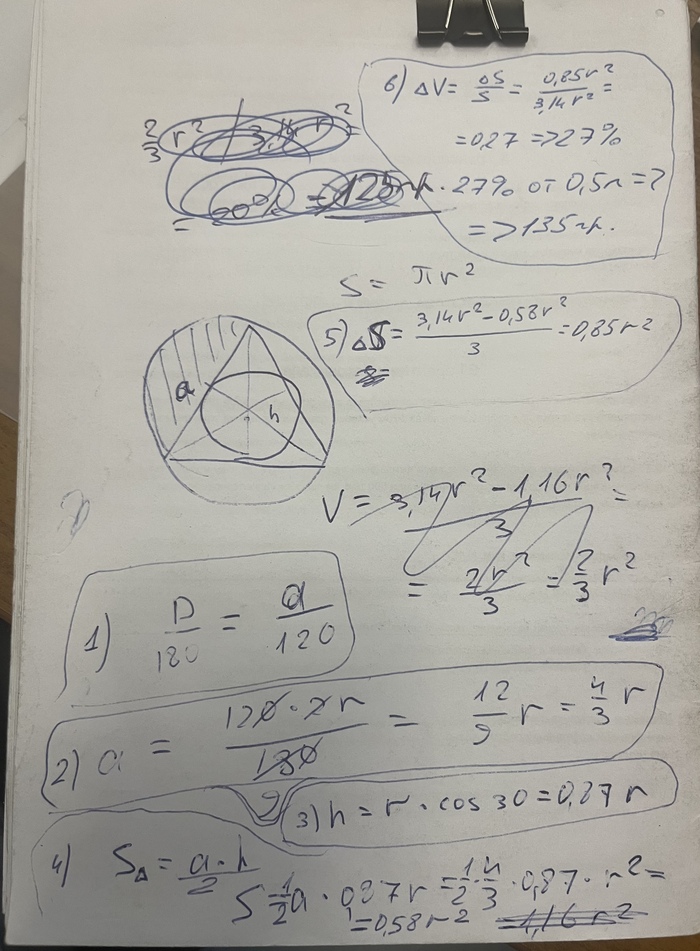 6) ΔV = ΔS/S = 0,85r²/3,14r² =
= 0,27 => 27%
27% от 0,5л = ?
=> 135мл.
2/3 r² / 3,14 r² =
= 20% = 125мл.
S = πr²
5) ΔS = (3,14r² - 0,58r²)/3 = 0,85r²
a
h
V = (3,14r² - 1,16r²)/3 =
= 2r²/3 = 2/3 r²
1) D/180 = a/120
2) a = 120·2r/180 = 12/9 r = 4/3 r
9
3) h = r · cos 30 = 0,87 r
4) S△ = a·h/2
S = 1/2 a · 0,87 r = 1/2 · 4/3 · 0,87 · r² =
= 0,58 r² 1,16 r²